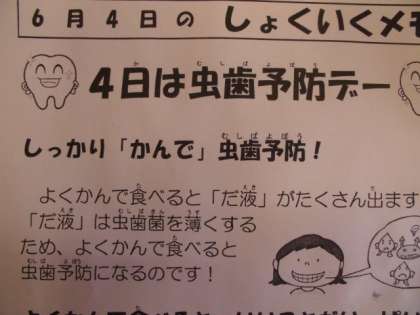 6月4日の しょくいくメモ
4日は虫歯予防デー
しっかり「かんで」虫歯予防！
よくかんで食べると「だ液」がたくさん出ます
「だ液」は虫歯菌を薄くする
ため、よくかんで食べると
虫歯予防になるのです！